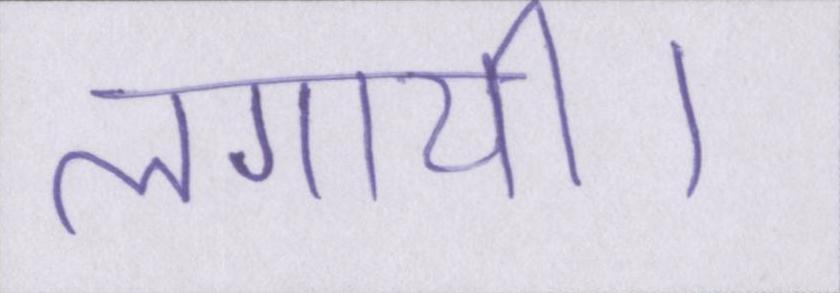 लगायी।